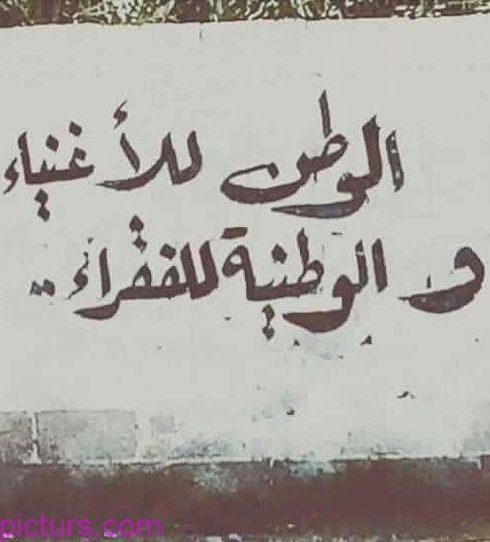 الوطن للأغنياء
و الوطنية للفقراء..
picturs.com